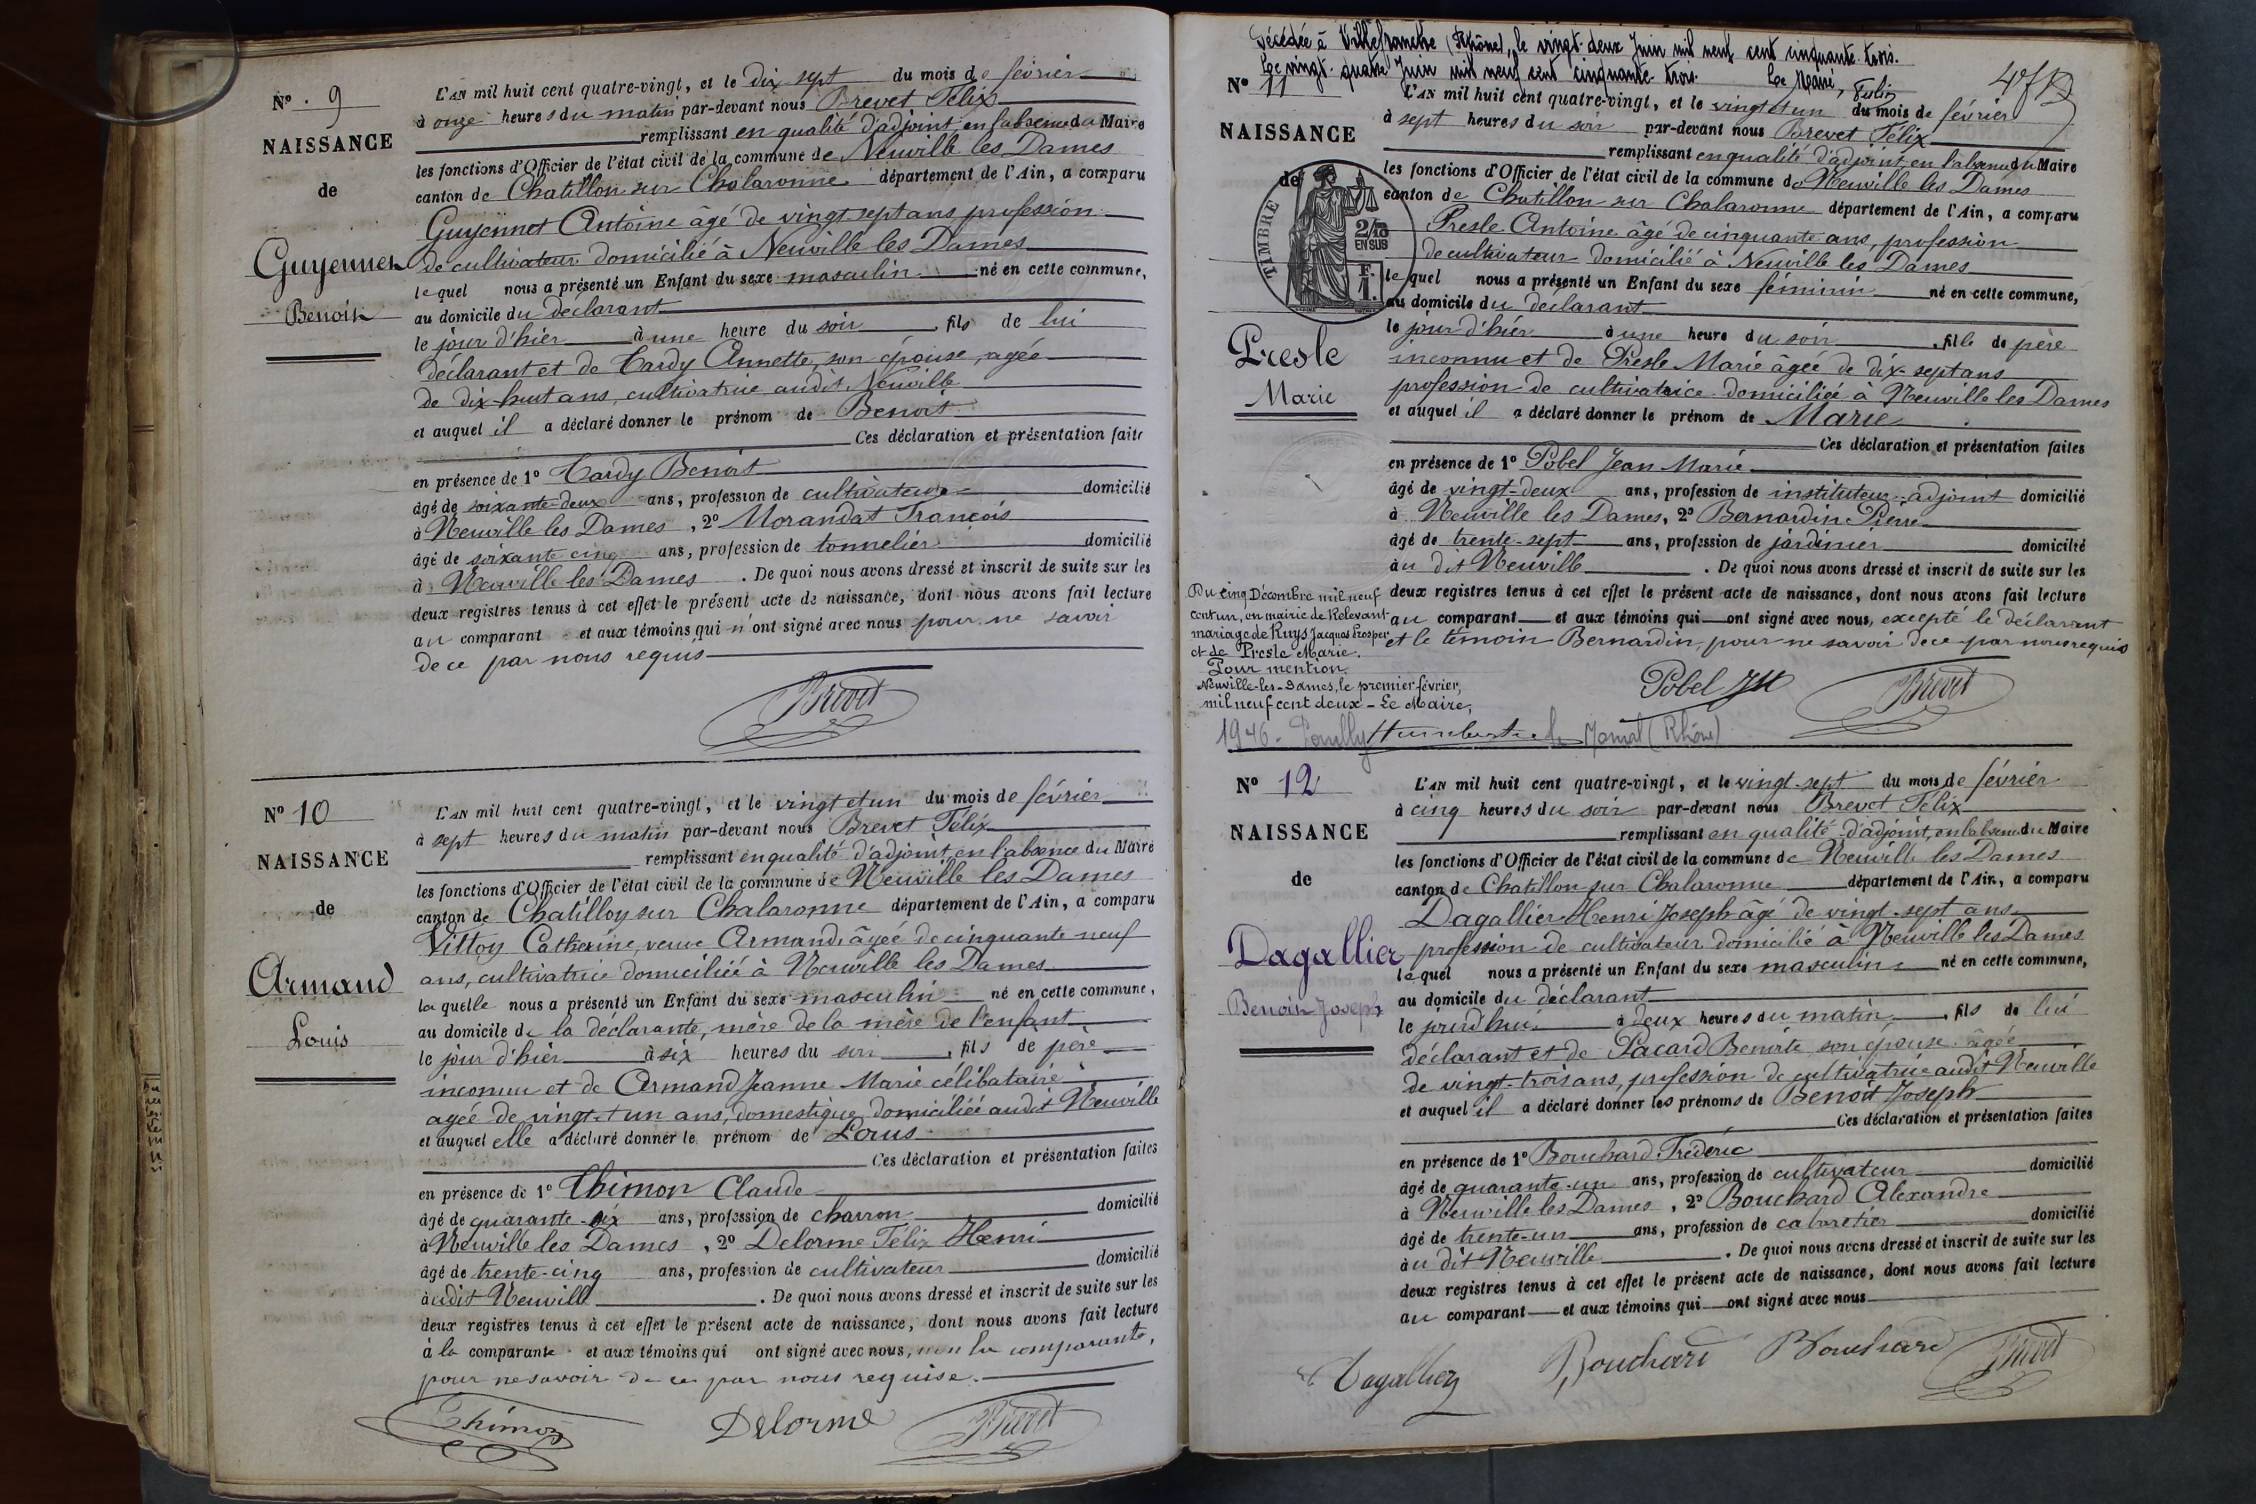 N° 9
NAISSANCE
de
Guyennet
Benoit
L'AN mil huit cent quatre-vingt, et le dix sept du mois de février
à onze heures du matin par-devant nous Brevet Félix
remplissant en qualité d'adjoint en l'absence du Maire
les fonctions d'Officier de l'état civil de la commune de Neuville les Dames
canton de Chatillon sur Chalaronne département de l'Ain, a comparu
Guyennet Antoine âgé de vingt sept ans profession
de cultivateur domicilié à Neuville les Dames
lequel nous a présenté un Enfant du sexe masculin né en cette commune,
au domicile du déclarant
le jour d'hier à une heure du soir, fils de lui
déclarant et de Tardy Annette, son épouse, agée
de dix-huit ans, cultivatrice audit Neuville
et auquel il a déclaré donner le prénom de Benoit
Ces déclaration et présentation faite
en présence de 1° Tardy Benoit
âgé de soixante-deux ans, profession de cultivateur domicilié
à Neuville les Dames, 2° Morandat François
âgé de soixante cinq ans, profession de tonnelier domicilié
à Neuville les Dames. De quoi nous avons dressé et inscrit de suite sur les
deux registres tenus à cet effet le présent acte de naissance, dont nous avons fait lecture
au comparant et aux témoins qui n'ont signé avec nous pour ne savoir
de ce par nous requis
Brevet
N° 10
NAISSANCE
de
Armand
Louis
L'AN mil huit cent quatre-vingt, et le vingt et un du mois de février
à sept heures du matin par-devant nous Brevet Félix
remplissant en qualité d'adjoint, en l'absence du Maire
les fonctions d'Officier de l'état civil de la commune de Neuville les Dames
canton de Chatillon sur Chalaronne département de l'Ain, a comparu
Vittoy Catherine, veuve Armand, âgée de cinquante neuf
ans, cultivatrice domiciliée à Neuville les Dames
la quelle nous a présenté un Enfant du sexe masculin né en cette commune,
au domicile de la déclarante, mère de la mère de l'enfant
le jour d'hier à six heures du soir, fils de père
inconnu et de Armand Jeanne Marie célibataire
agée de vingt et un ans, domestique domiciliée audit Neuville
et auquel elle a déclaré donner le prénom de Louis
Ces déclaration et présentation faites
en présence de 1° Thimon Claude
âgé de quarante-six ans, profession de charron domicilié
à Neuville les Dames, 2° Delorme Félix Henri
âgé de trente-cinq ans, profession de cultivateur domicilié
audit Neuvill. De quoi nous avons dressé et inscrit de suite sur les
deux registres tenus à cet effet le présent acte de naissance, dont nous avons fait lecture
à la comparante et aux témoins qui ont signé avec nous, non la comparante,
pour ne savoir de ce par nous requise.
Thimon Delorme Brevet
Décédée à Villefranche (Rhône), le vingt-deux Juin mil neuf cent cinquante-trois.
Le vingt-quatre Juin mil neuf cent cinquante-trois. Le Maire,
N° 11
NAISSANCE
de
TIMBRE
2/10
EN SUS
F.
1.
Presle
Marie
L'AN mil huit cent quatre-vingt, et le vingt et un du mois de février
à sept heures du soir par-devant nous Brevet Félix
remplissant en qualité d'adjoint, en l'absence du Maire
les fonctions d'Officier de l'état civil de la commune de Neuville les Dames
canton de Chatillon sur Chalaronne département de l'Ain, a comparu
Presle Antoine âgé de cinquante ans, profession
de cultivateur domicilié à Neuville les Dames
le quel nous a présenté un Enfant du sexe féminin né en cette commune,
au domicile du déclarant
le jour d'hier à une heure du soir, fille de père
inconnu et de Presle Marie âgée de dix-sept ans
profession de cultivatrice domiciliée à Neuville les Dames
et auquel il a déclaré donner le prénom de Marie
Ces déclaration et présentation faites
en présence de 1° Pobel Jean Marie
âgé de vingt-deux ans, profession de instituteur-adjoint domicilié
à Neuville les Dames, 2° Bernardin Pierre
âgé de trente-sept ans, profession de jardinier domicilié
au dit Neuville. De quoi nous avons dressé et inscrit de suite sur les
deux registres tenus à cet effet le présent acte de naissance, dont nous avons fait lecture
au comparant et aux témoins qui ont signé avec nous, excepté le déclarant
et le témoin Bernardin, pour ne savoir de ce par nous requis
Pobel JM Brevet
Du cinq Décembre mil neuf
cent un, en mairie de Relevant
mariage de Ruys Jacques Prosper
et de Presle Marie.
Pour mention.
Neuville-les-Dames, le premier février,
mil neuf cent deux - Le Maire,
1946 - Pouilly le Monial (Rhône)
N° 12
NAISSANCE
de
Dagallier
Benoit Joseph
L'AN mil huit cent quatre-vingt, et le vingt-sept du mois de février
à cinq heures du soir par-devant nous Brevet Félix
remplissant en qualité d'adjoint, en l'absence du Maire
les fonctions d'Officier de l'état civil de la commune de Neuville les Dames
canton de Chatillon sur Chalaronne département de l'Ain, a comparu
Dagallier Henri Joseph âgé de vingt-sept ans
profession de cultivateur domicilié à Neuville les Dames
le quel nous a présenté un Enfant du sexe masculin né en cette commune,
au domicile du déclarant
le jourd'hui à deux heures du matin, fils de lui
déclarant et de Pacard Benoite son épouse âgée
de vingt-trois ans, profession de cultivatrice audit Neuville
et auquel il a déclaré donner les prénoms de Benoit Joseph
Ces déclaration et présentation faites
en présence de 1° Bouchard Frédéric
âgé de quarante-un ans, profession de cultivateur domicilié
à Neuville les Dames, 2° Bouchard Alexandre
âgé de trente-un ans, profession de cabaretier domicilié
au dit Neuville. De quoi nous avons dressé et inscrit de suite sur les
deux registres tenus à cet effet le présent acte de naissance, dont nous avons fait lecture
au comparant et aux témoins qui ont signé avec nous
Dagallier Bouchard Bouchard Brevet